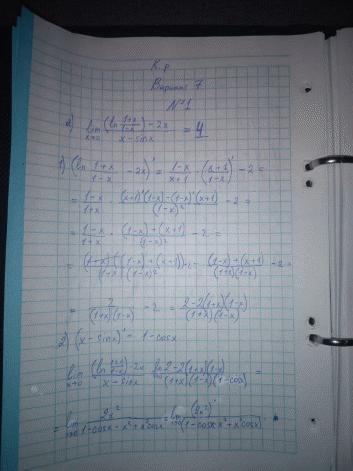 К.р
Вариант 7
№1
а) lim x→0 (ln (1+x)/(1-x)) - 2x / x - sinx = 4
1) (ln (1+x)/(1-x) - 2x)' = (1-x)/(x+1) · ((x+1)/(1-x))' - 2 =
= (1-x)/(1+x) · ((x+1)'(1-x) - (1-x)'(x+1))/(1-x)² - 2 =
= (1-x)/(1+x) · ((1-x) + (x+1))/(1-x)² - 2 =
= (1-x)((1-x) + (x+1))/(1+x)(1-x)² - 2 = ((1-x) + (x+1))/((1+x)(1-x)) - 2 =
= 2/((1+x)(1-x)) - 2 = (2-2(1+x)(1-x))/((1+x)(1-x))
2) (x - sinx)' = 1 - cosx
lim x→0 (ln (1+x)/(1-x)) - 2x / x - sinx = lim x→0 2-2(1+x)(1-x) / (1+x)(1-x)(1-cosx) =
= lim x→0 2x² / 1-cosx-x²+x²cosx = lim x→0 (2x²)' / (1-cosx-x²+x²cosx)'